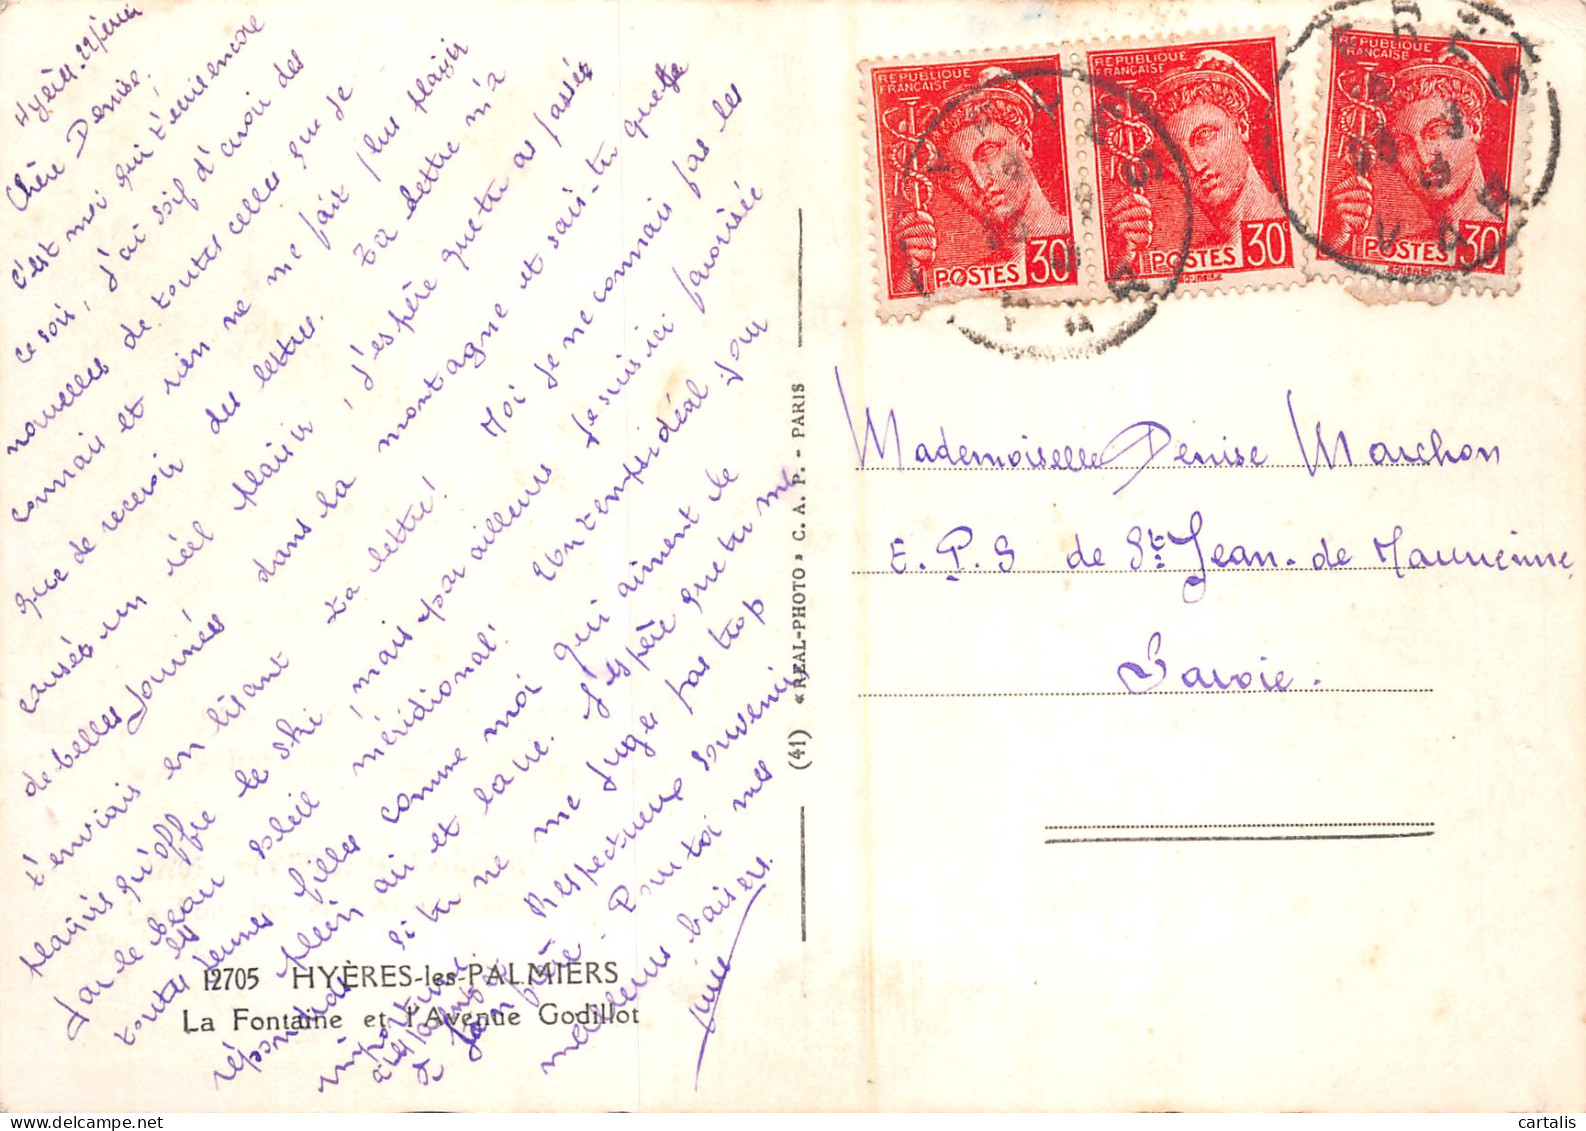 Hyères 22 février
Chère Denise.
c'est moi qui t'écris encore
ce soir, j'ai soif d'avoir des
nouvelles de toutes celles que je
connais et rien ne me fait plus plaisir
que de recevoir des lettres. Ta lettre m'a
causée un réel plaisir, j'espère que tu as passé
de belles journées dans la montagne et sais-tu que je
t'enviais en lisant ta lettre! Moi je ne connais pas les
plaisirs qu'offre le ski, mais par ailleurs je suis ici favorisée
par le beau soleil méridional. Un temps idéal pour
toutes les jeunes filles comme moi qui aiment le
plein air et la vie. J'espère que tu me
répondras si tu ne me juges pas trop
importune. Respectueux souvenir
à
Pour toi mes
meilleurs baisers.
12705 HYÈRES-les-PALMIERS
La Fontaine et l'Avenue Godillot
(41) « REAL-PHOTO » C. A. P. - PARIS
RÉPUBLIQUE FRANÇAISE
POSTES 30c
RÉPUBLIQUE FRANÇAISE
POSTES 30c
RÉPUBLIQUE FRANÇAISE
POSTES 30c
VAR
Mademoiselle Denise Marchon
E. P. S de St Jean-de Maurienne
Savoie.
cartalis
delcampe.net